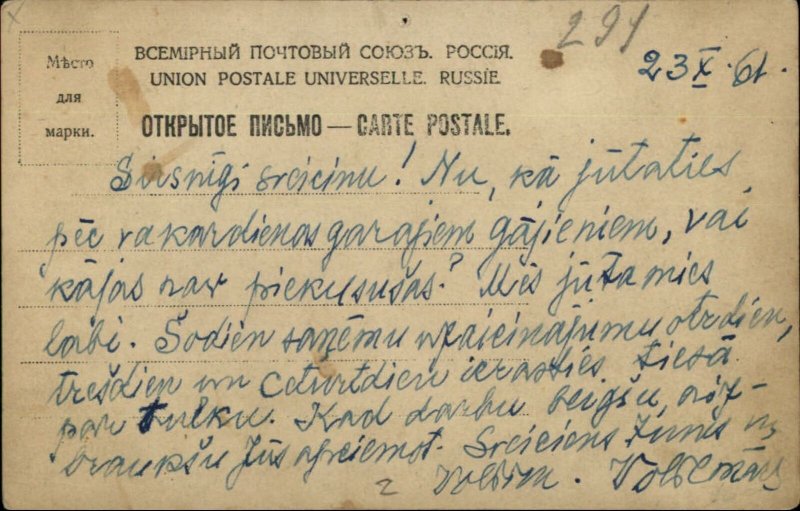 291
23 X 61.
ВСЕМІРНЫЙ ПОЧТОВЫЙ СОЮЗЪ. РОССІЯ.
UNION POSTALE UNIVERSELLE. RUSSIE.
Мѣсто
для
марки.
ОТКРЫТОЕ ПИСЬМО — CARTE POSTALE.
Sirsnīgi sveicinu! Nu, kā jūtaties
pēc vakardienas garajiem gājieniem, vai
kājas nav piekusušas? Mēs jūtamies
labi. Šodien saņēmu uzaicinājumu otrdien,
trešdien un ceturtdien ierasties tiesā
par tulku. Kad darbu beigšu, aiz-
braukšu Jūs apciemot. Sveiciens Jums un
Voldemārs